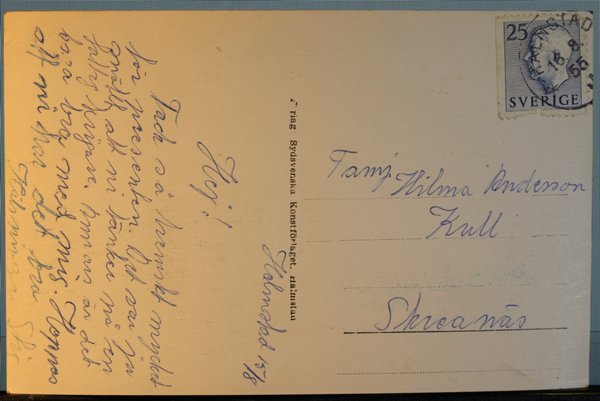 Halmstad 15/8
Hej!
Tack så hemskt mycket
för presenten. Det var ju
snällt att ni tänker på en
bra bra med mig. Hoppas
att ni har det bra
Förlag Sydsvenska Konstförlaget, Halmstad
25
SVERIGE
HALMSTAD
16 8
55
Famj. Hilma Andersson
Kull
Skreanäs